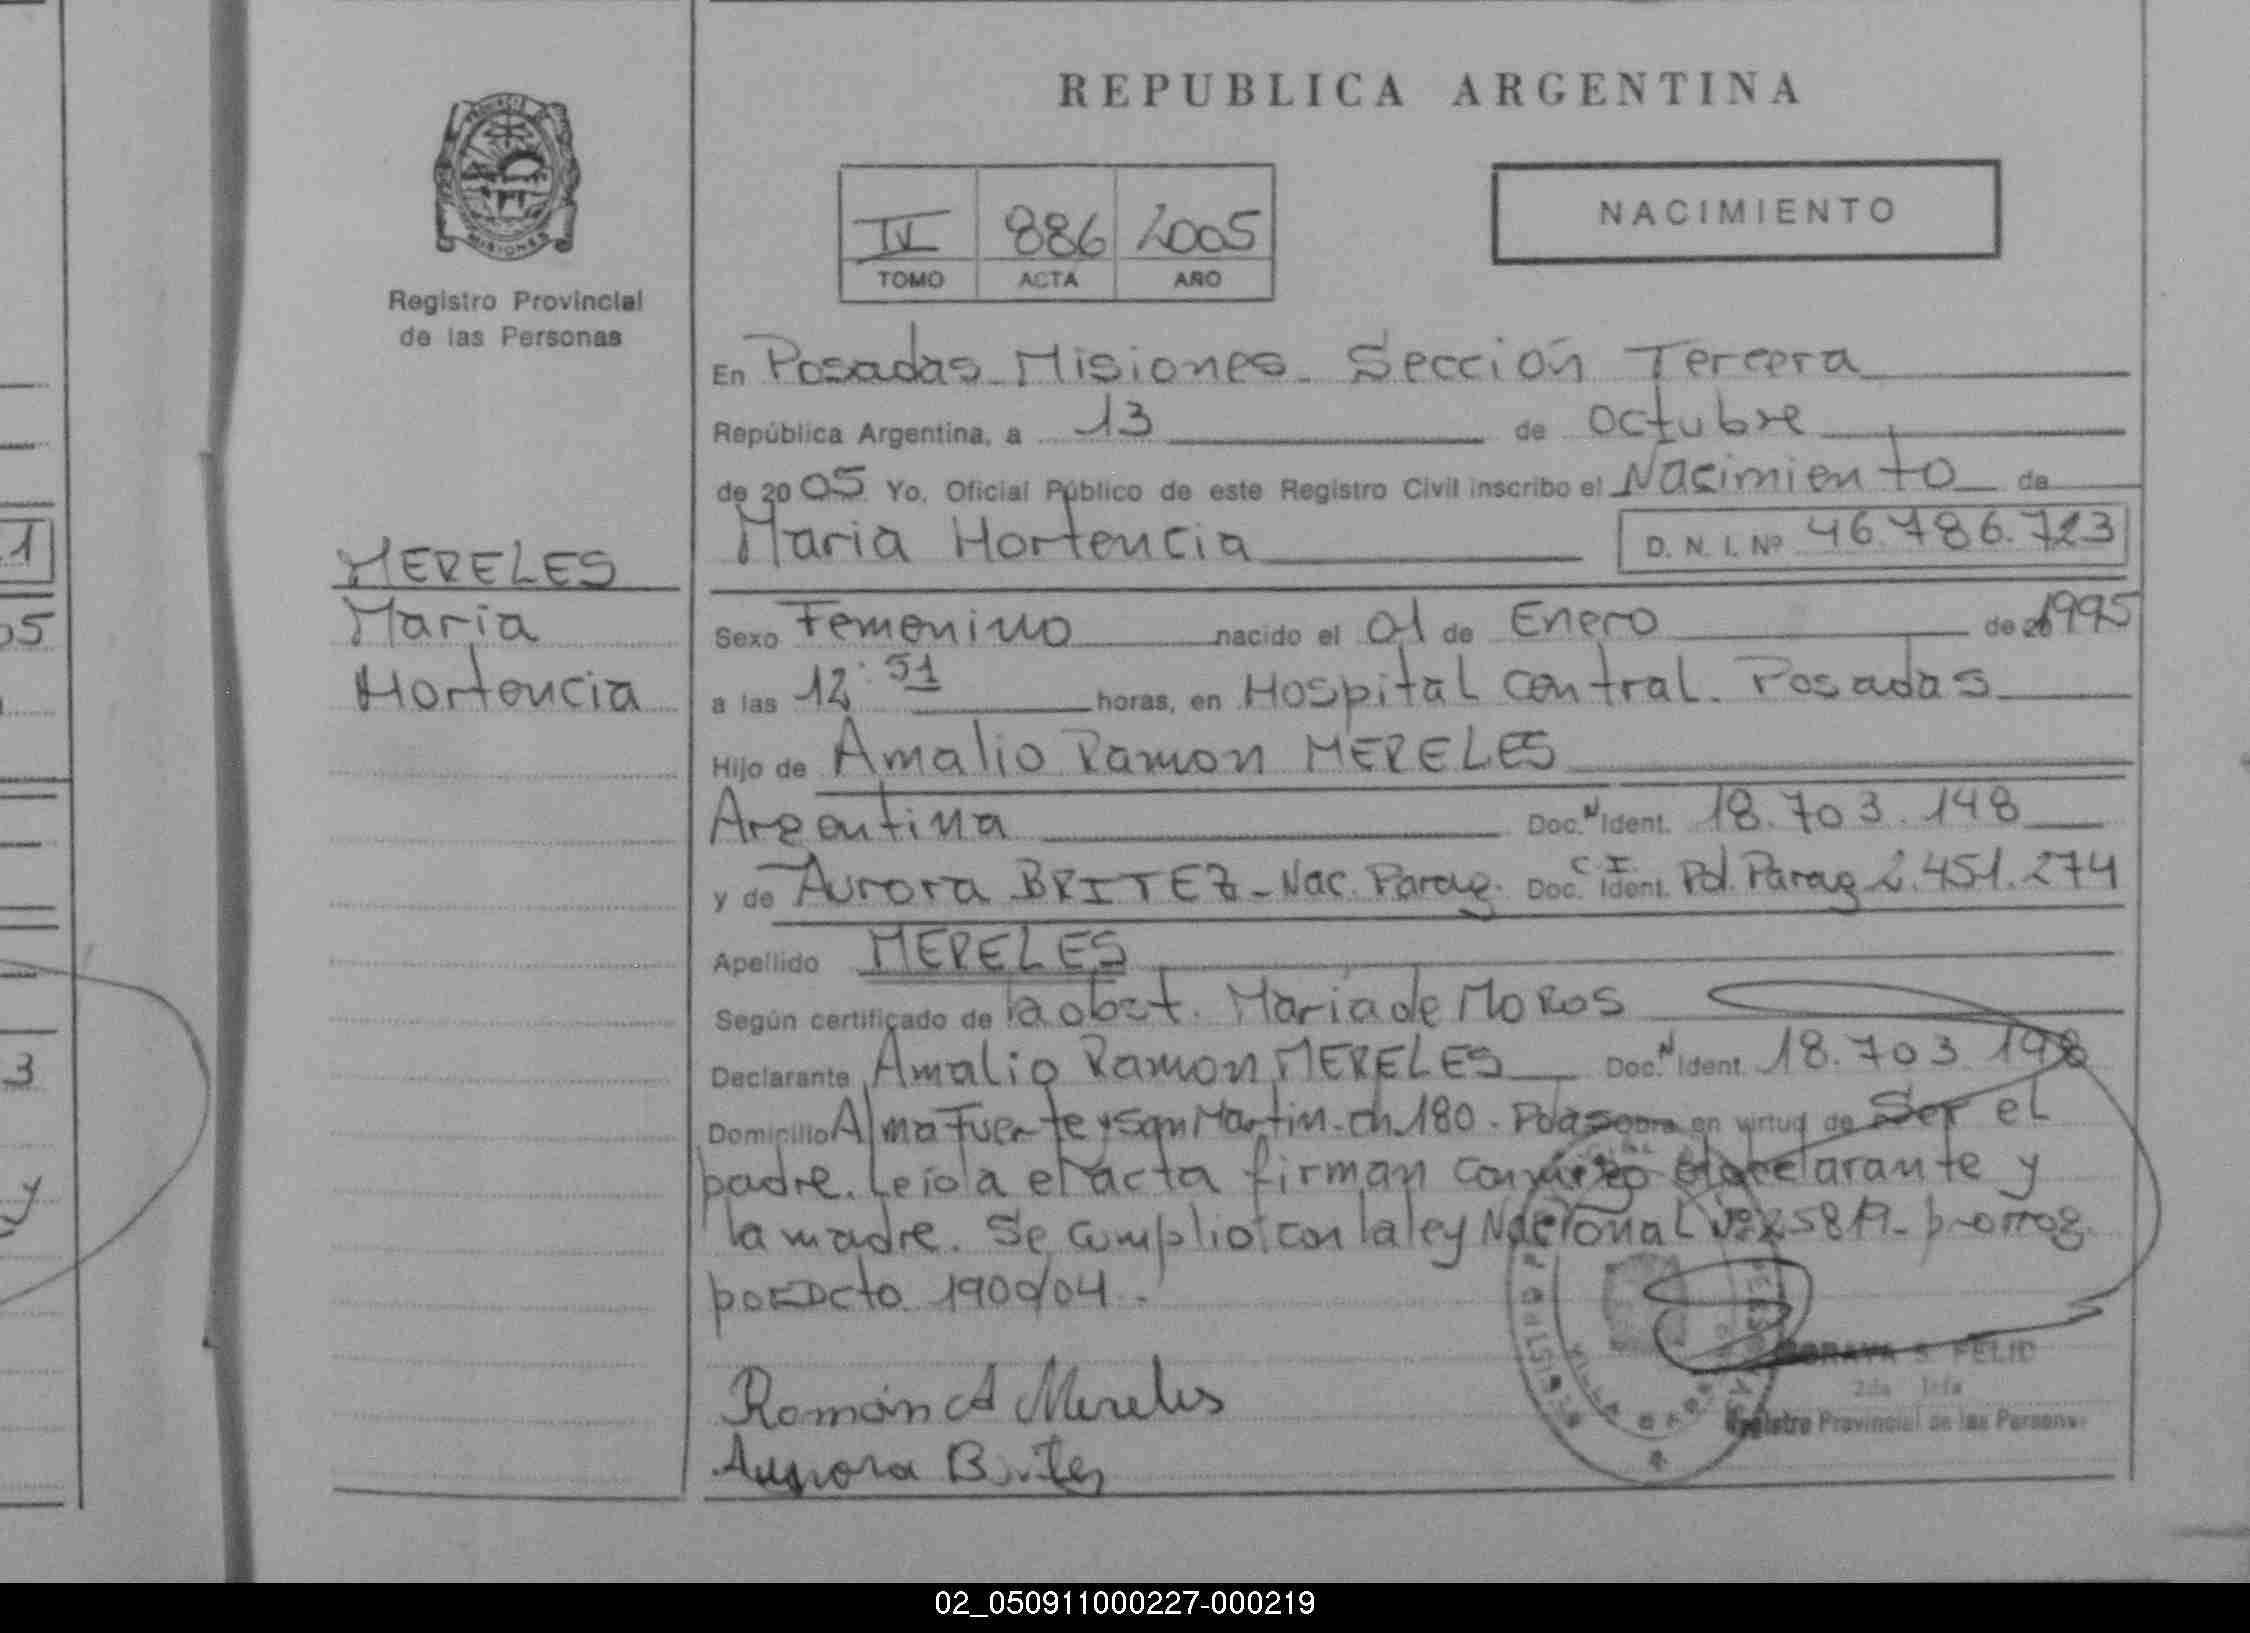 REPUBLICA ARGENTINA
MISIONES
Registro Provincial
de las Personas
NACIMIENTO
IV 886 2005
TOMO ACTA AÑO
En Posadas Misiones. Sección Tercera
República Argentina, a 13 de Octubre
de 2005 Yo, Oficial Público de este Registro Civil inscribo el Nacimiento de
Maria Hortencia D. N. I. Nº 46.786.723
MERELES
Maria
Hortencia
Sexo Femenino nacido el 01 de Enero de 1995
a las 12:51 horas, en Hospital Central. Posadas
Hijo de Amalio Ramon MERELES
Argentina Doc. N Ident. 18.703.148
y de Aurora BRITEZ - Nac. Parag. Doc. C.I. Ident. Pol. Parag 2.451.274
Apellido MERELES
Según certificado de la obst. Maria de MOROS
Declarante Amalio Ramon MERELES Doc. N Ident. 18.703.148
Domicilio Almafuerte y San Martin - ch. 180 - Pdas en virtud de Ser el
padre. Leída el acta firman conmigo el declarante y
la madre. Se cumplio con la ley Nacional Nº 25819 - prorrog.
por Dcto 1900/04.
Ramón A Mereles
Aurora Britez
SORAYA S. FELIP
2da Jefa
Registro Provincial de las Personas
1
05
3
y
02_050911000227-000219